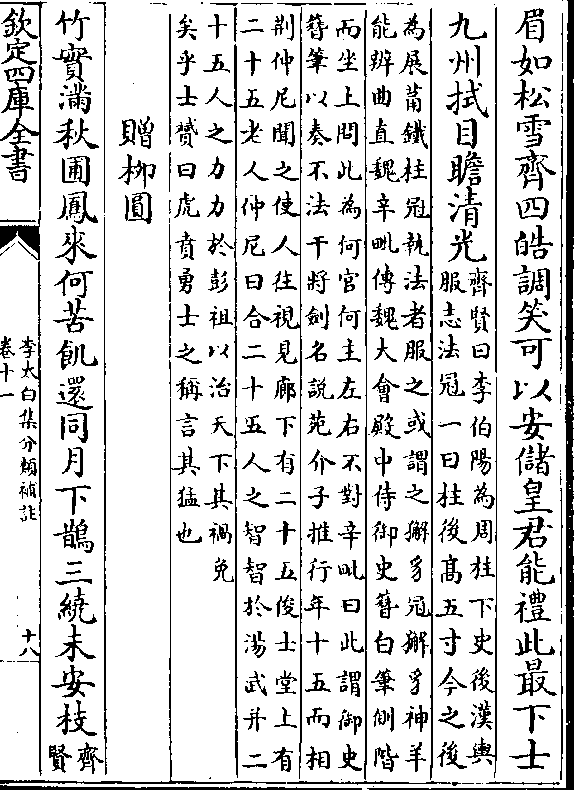 眉如松雪齊四皓調笑可以安儲皇君能禮此最下士
九州拭目瞻清光
齊賢曰李伯陽為周柱下史後漢輿
服志法冠一曰柱後髙五寸今之後
為展莆鐵柱冠執法者服之或謂之獬豸冠獬豸神羊
能辨曲直魏辛毗傳魏大會殿中侍御史簪白筆側階
而坐上問此為何官何主左右不對辛毗曰此謂御史
簪筆以奏不法干將劍名說苑介子推行年十五而相
荆仲尼聞之使人往視見廊下有二十五俊士堂上有
二十五老人仲尼曰合二十五人之智智於湯武并二
十五人之力力於彭祖以治天下其禍免
矣乎士贇曰虎賁勇士之稱言其猛也
贈柳圓
竹實滿秋圃鳳來何苦飢還同月下鵲三繞未安枝
齊
賢
欽定四庫全書
李太白集分類補註
卷十一
十八